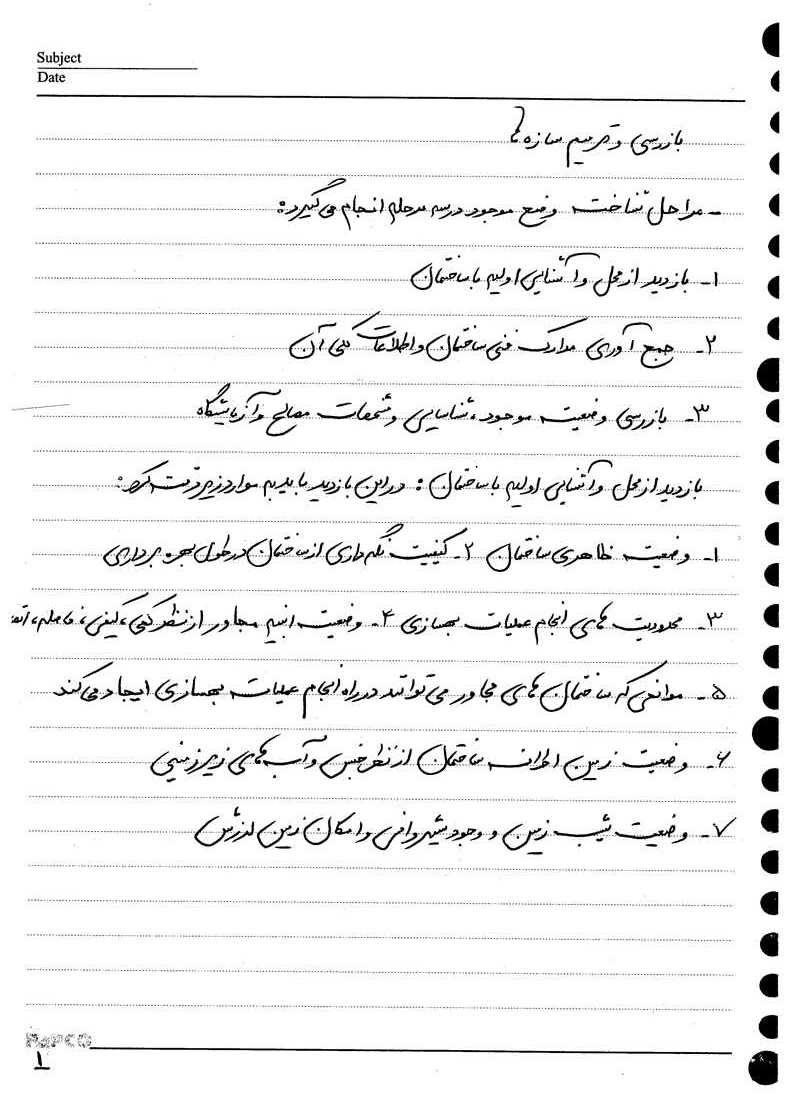 Subject
Date
بازرسی و ترمیم سازه ها
- مراحل شناخت وضع موجود در سه مرحله انجام می گیرد:
۱- بازدید از محل و آشنایی اولیه با ساختمان
۲- جمع آوری مدارک فنی ساختمان و اطلاعات کلی آن
۳- بازرسی وضعیت موجود، شناسایی و مشخصات مصالح و آزمایشگاه
بازدید از محل و آشنایی اولیه با ساختمان: در این بازدید باید به موارد زیر دقت کرد:
۱- وضعیت ظاهری ساختمان ۲- کیفیت نگهداری از ساختمان در طول بهره برداری
۳- محدودیت های انجام عملیات بهسازی ۴- وضعیت ابنیه مجاور از نظر کمی، کیفی، فاصله،
۵- موانعی که ساختمان های مجاور می توانند در راه انجام عملیات بهسازی ایجاد می کند
۶- وضعیت زمین اطراف ساختمان از نظر جنس و آب های زیرزمینی
۷- وضعیت شیب زمین و وجود شیروانی و امکان زمین لغزش
PaPCO
۱